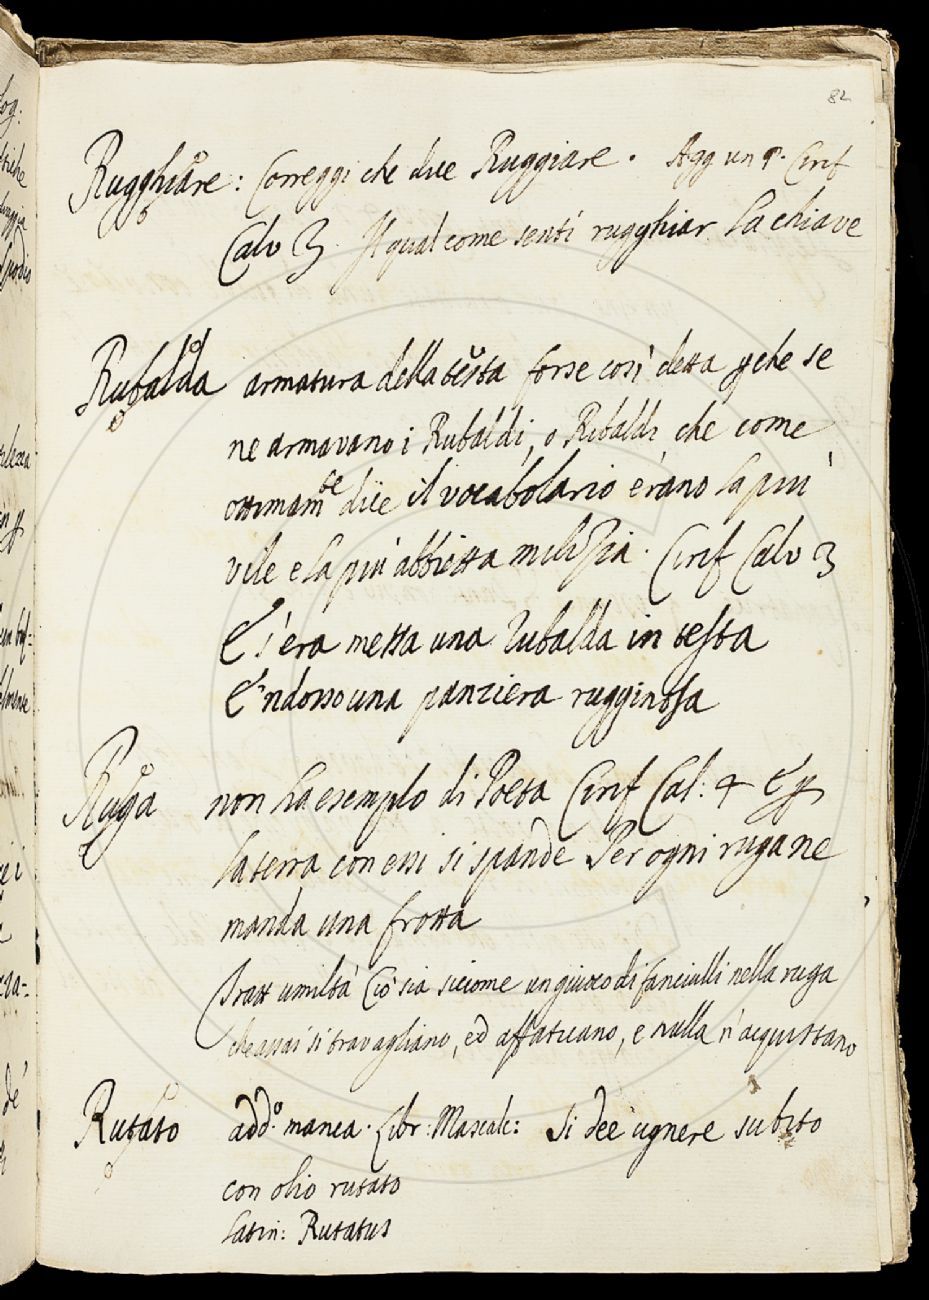 82
Rugghiare: Correggi che dice Ruggiare. Agg un P. Cirif
Calv 3 Il qual come senti rugghiar la chiave
Rubalda armatura della testa forse così detta pche se
ne armavano i Rubaldi, o Ribaldi che come
ottimamte dice il vocabolario erano la più
vile e la più abbietta milizia. Cirif Calv 3
E s'era messa una Rubalda in testa
E 'ndosso una panziera rugginosa
Ruga non ha esempio di Poeta Cirif Cal: 4 E p
la terra con essi si spande Per ogni ruga ne
manda una frotta
Tratt umiltà Ciò sia siccome un giuoco di fanciulli nella ruga
che assai si travagliano, ed affaticano, e nulla n'acquistano
Rutato add.o manca. Libr: Mascalc: Si dee ugnere subito
con olio rutato
latin: Rutatus